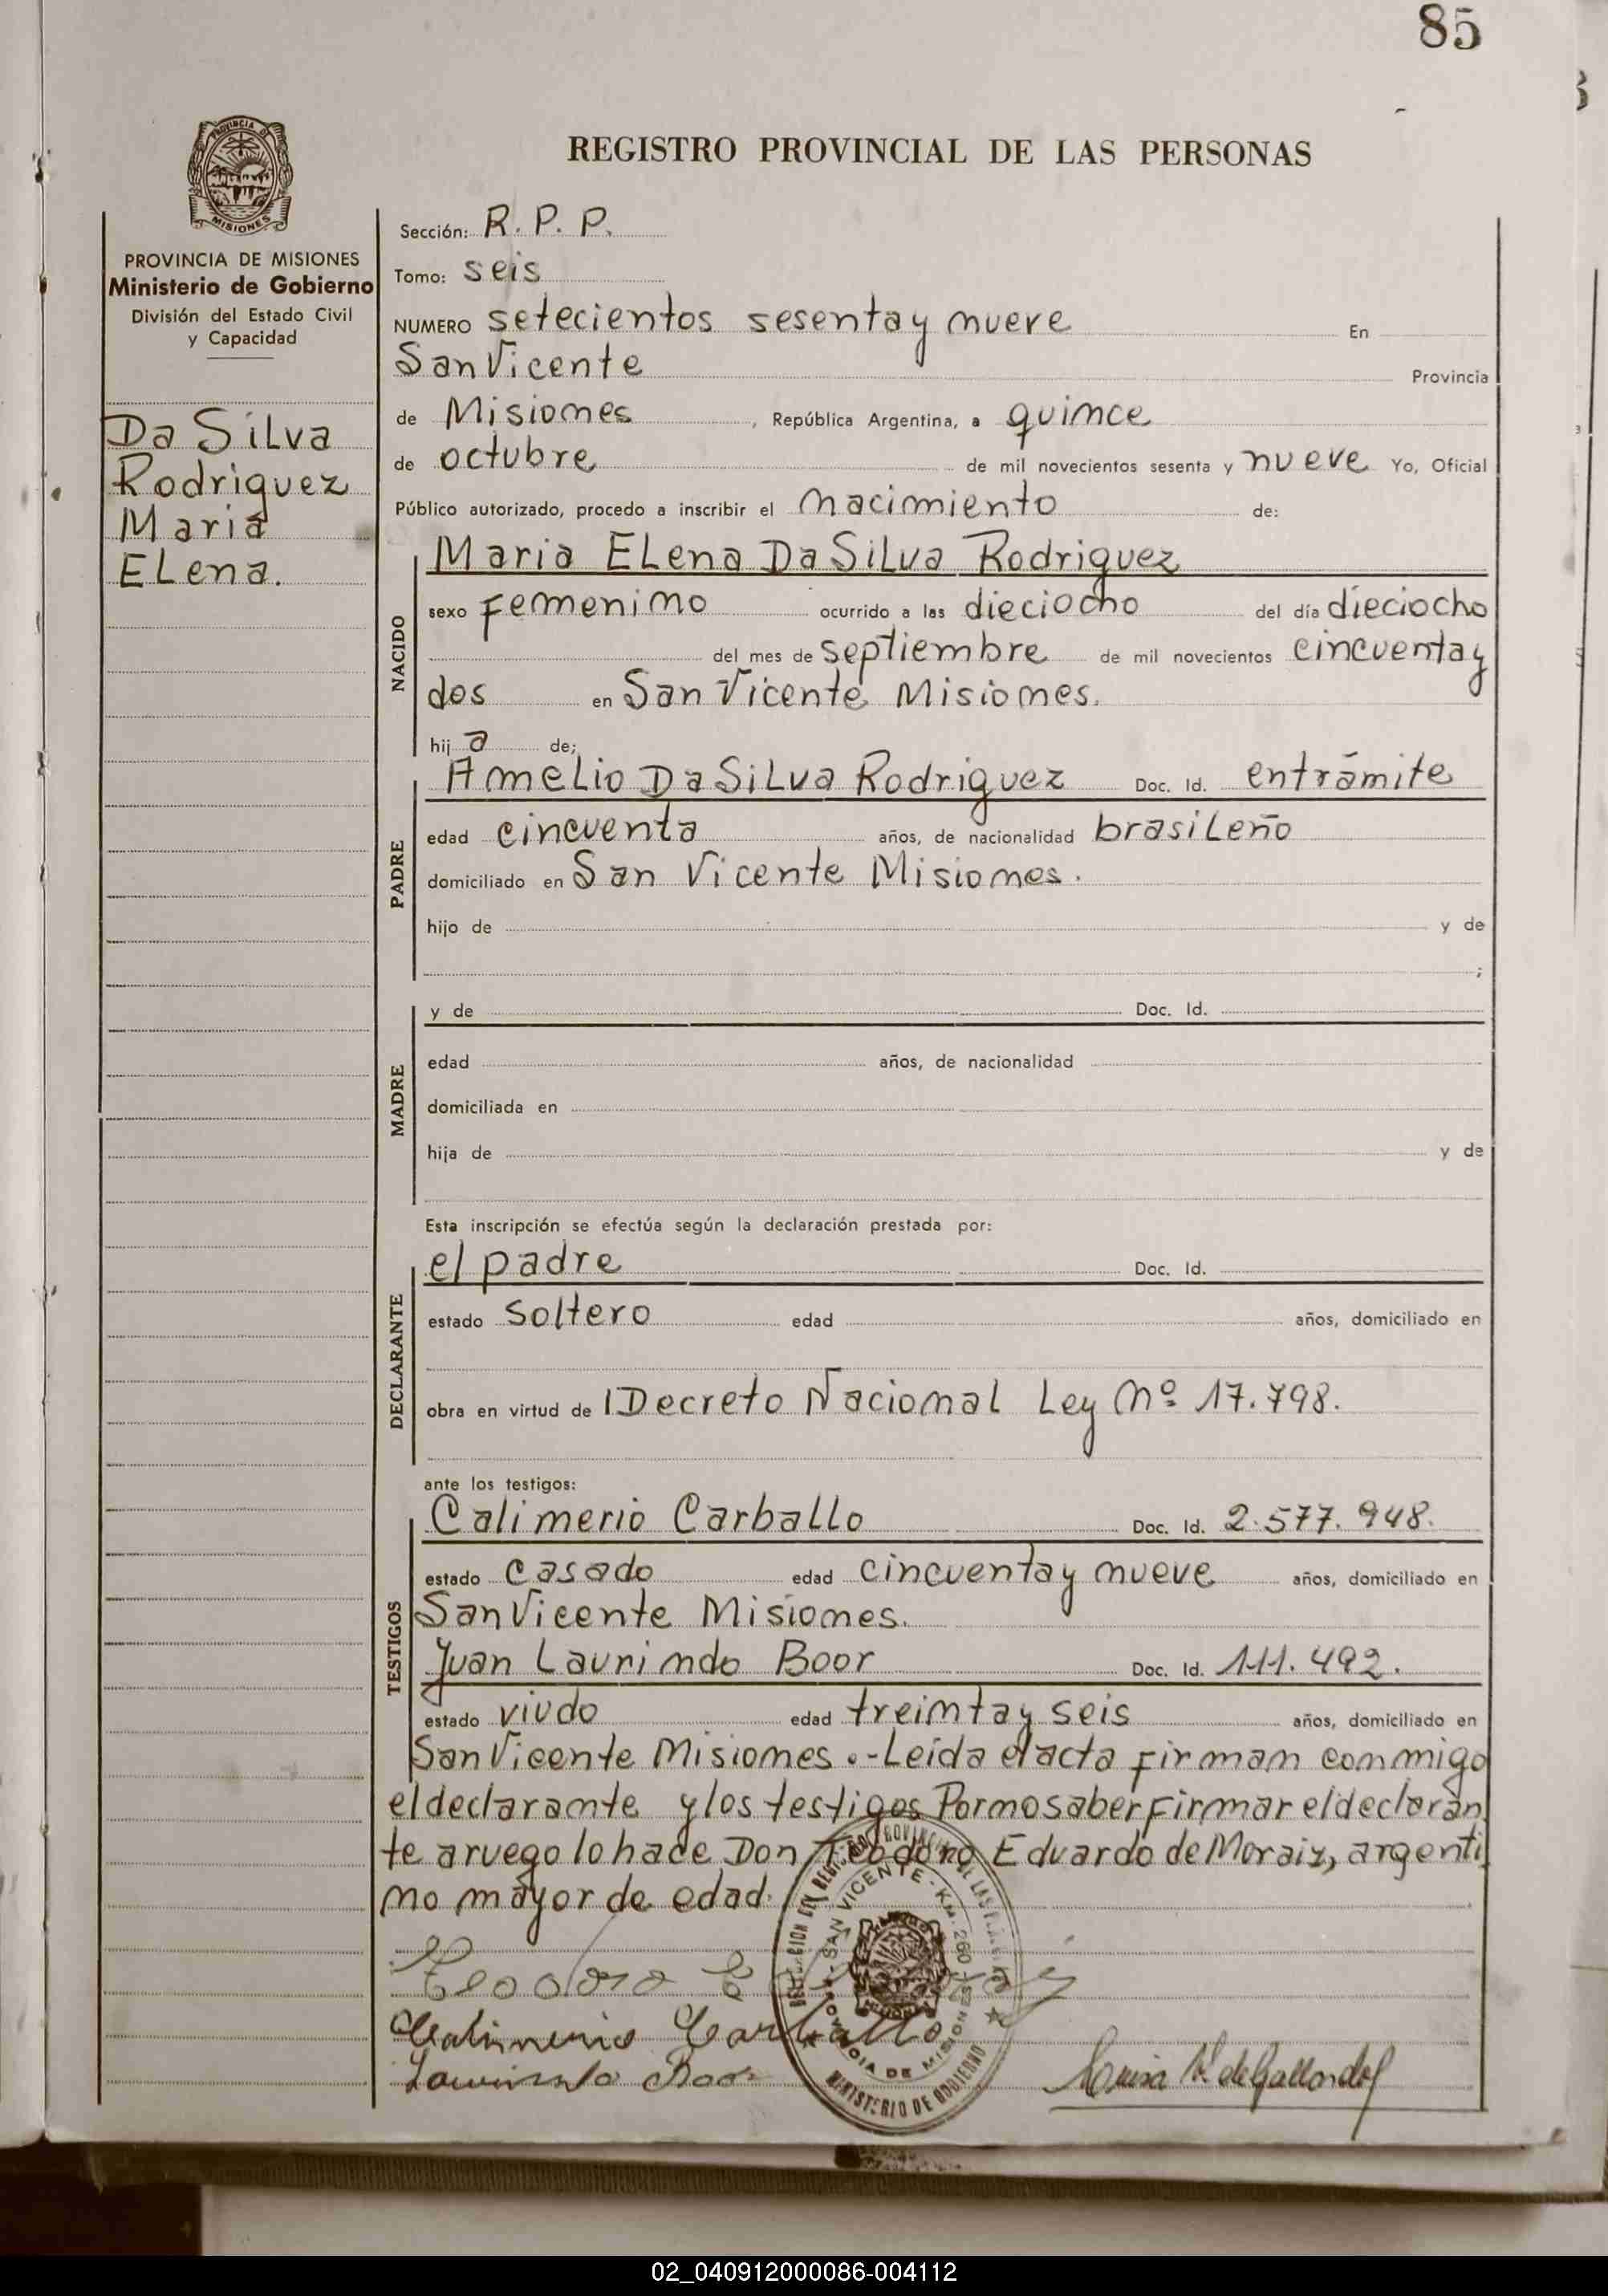 85
REGISTRO PROVINCIAL DE LAS PERSONAS
PROVINCIA DE MISIONES
Ministerio de Gobierno
División del Estado Civil
y Capacidad
Da SiLva
Rodriguez
Maria
ELena.
Sección: R. P. P.
Tomo: seis
NUMERO setecientos sesenta y nueve En
San Vicente Provincia
de Misiones, República Argentina, a quince
de octubre de mil novecientos sesenta y nueve Yo, Oficial
Público autorizado, procedo a inscribir el nacimiento de:
NACIDO
Maria ELena Da SiLva Rodriguez
sexo femenino ocurrido a las dieciocho del día dieciocho
del mes de septiembre de mil novecientos cincuenta y
dos en San Vicente Misiones.
hij a de;
PADRE
AmeLio Da SiLva Rodriguez Doc. Id. en trámite
edad cincuenta años, de nacionalidad brasiLeño
domiciliado en San Vicente Misiones.
hijo de y de
;
MADRE
y de Doc. Id.
edad años, de nacionalidad
domiciliada en
hija de y de
Esta inscripción se efectúa según la declaración prestada por:
DECLARANTE
el padre Doc. Id.
estado soltero edad años, domiciliado en
obra en virtud de Decreto Nacional Ley Nº 17.798.
ante los testigos:
TESTIGOS
Calimerio Carballo Doc. Id. 2.577.948.
estado casado edad cincuenta y nueve años, domiciliado en
San Vicente Misiones.
Juan Laurindo Boor Doc. Id. 111.492.
estado viudo edad treinta y seis años, domiciliado en
San Vicente Misiones.-Leída el acta firman conmigo
el declarante y los testigos Por no saber firmar el declaran
te a ruego lo hace Don Teodoro Eduardo de Moraiz, argenti
no mayor de edad.
Teodoro
Calimerio Carballo
Laurindo Boor
SAN VICENTE - KM. 260
PROVINCIA DE MISIONES
MINISTERIO DE GOBIERNO
02_040912000086-004112